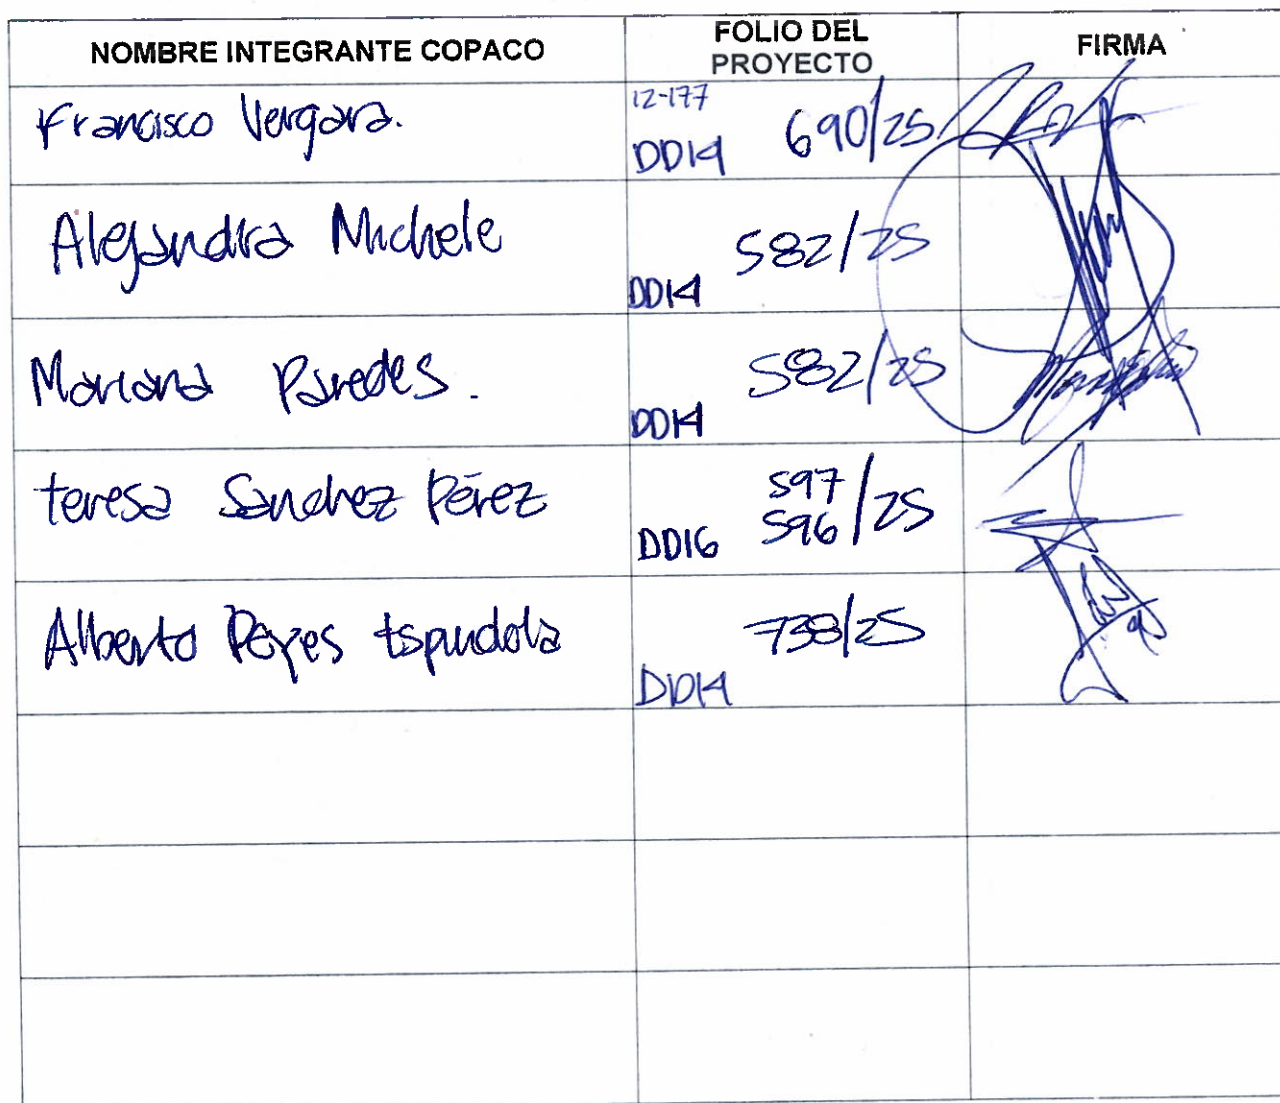 NOMBRE INTEGRANTE COPACO
FOLIO DEL
PROYECTO
FIRMA
Francisco Vergara.
12-177
DD14 690/25
Alejandra Michele
582/25
DD14
Mariana Paredes.
582/25
DD14
teresa Sanchez Pérez
597
596 /25
DD16
Alberto Reyes Espindola
738/25
DD14